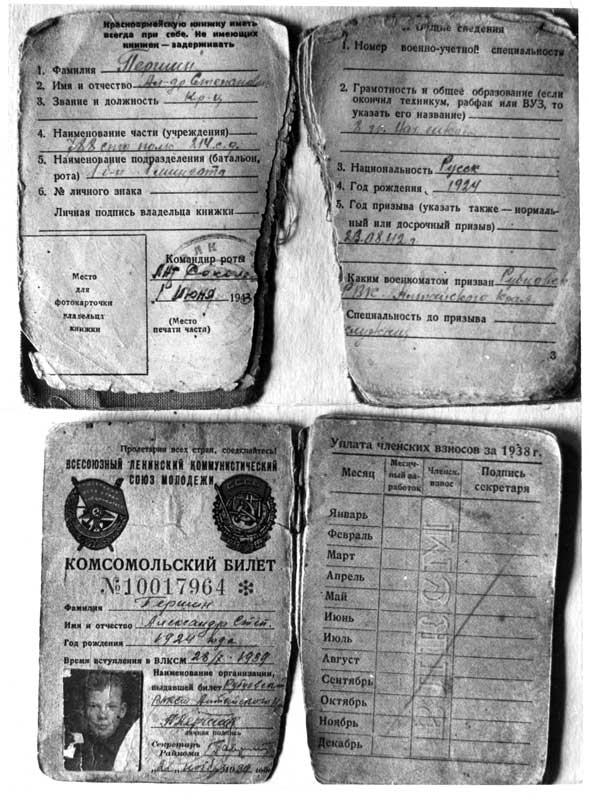 Красноармейскую книжку иметь
всегда при себе. Не имеющих
книжек — задерживать
1. Фамилия Першин
2. Имя и отчество Ал-др Степанович
3. Звание и должность кр-ц
4. Наименование части (учреждения)
788 стр. полк 214 с.д.
5. Наименование подразделения (батальон,
рота)
6. № личного знака
Личная подпись владельца книжки
Место
для
фотокарточки
владельца
книжки
Командир роты
июня 1943
(Место
печати части)
Общие сведения
1. Номер военно-учетной специальности
2. Грамотность и общее образование (если
окончил техникум, рабфак или ВУЗ, то
указать его название)
3. Национальность Русск
4. Год рождения 1924
5. Год призыва (указать также — нормаль-
ный или досрочный призыв)
23.08.42 г.
Каким военкоматом призван Рубцовск
РВК Алтайского края
Специальность до призыва
служащ
3
Пролетарии всех стран, соединяйтесь!
ВСЕСОЮЗНЫЙ ЛЕНИНСКИЙ КОММУНИСТИЧЕСКИЙ
СОЮЗ МОЛОДЕЖИ
КОМСОМОЛЬСКИЙ БИЛЕТ
№10017964 *
Фамилия Першин
Имя и отчество Александр Степ.
Год рождения 1924 года
Время вступления в ВЛКСМ 28/X-1939
Наименование организации,
выдавшей билет Рубцовским
РКВЛКСМ Алтайского
личная подпись
Секретарь
Райкома
1939
Уплата членских взносов за 1938 г.
Месяц
Месяч-
ный за-
работок
Членск.
взнос
Подпись
секретаря
Январь
Февраль
Март
Апрель
Май
Июнь
Июль
Август
Сентябрь
Октябрь
Ноябрь
Декабрь
ВЛКСМ